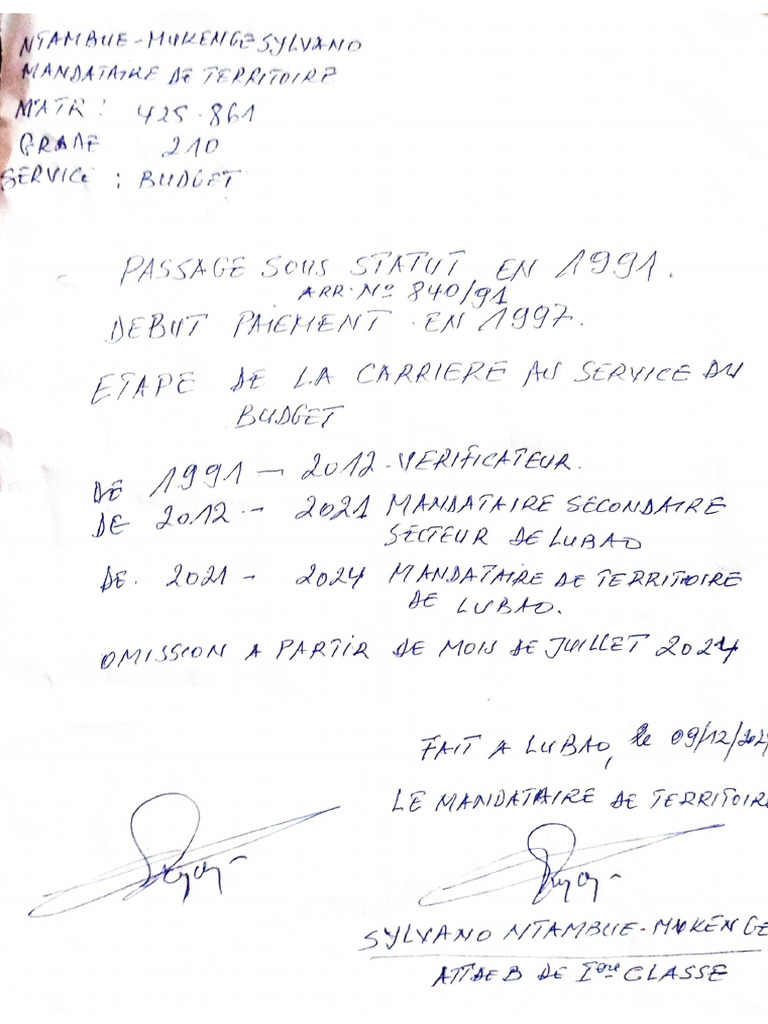 NTAMBUE-MUKENGE SYLVANO
MANDATAIRE DE TERRITOIRE
MATR : 425.861
GRADE 210
SERVICE : BUDGET
PASSAGE SOUS STATUT EN 1991.
ARR. No 840/91
DEBUT PAIEMENT EN 1997.
ETAPE DE LA CARRIERE AU SERVICE DU
BUDGET
DE 1991 - 2012. VERIFICATEUR.
DE 2012 - 2021 MANDATAIRE SECONDAIRE
SECTEUR DE LUBAO
DE. 2021 - 2024 MANDATAIRE DE TERRITOIRE
DE LUBAO.
OMISSION A PARTIR DE MOIS DE JUILLET 2024
FAIT A LUBAO, le 09/12/202
LE MANDATAIRE DE TERRITOIRE
SYLVANO NTAMBUE-MUKENGE
ATTDEB DE Iere CLASSE